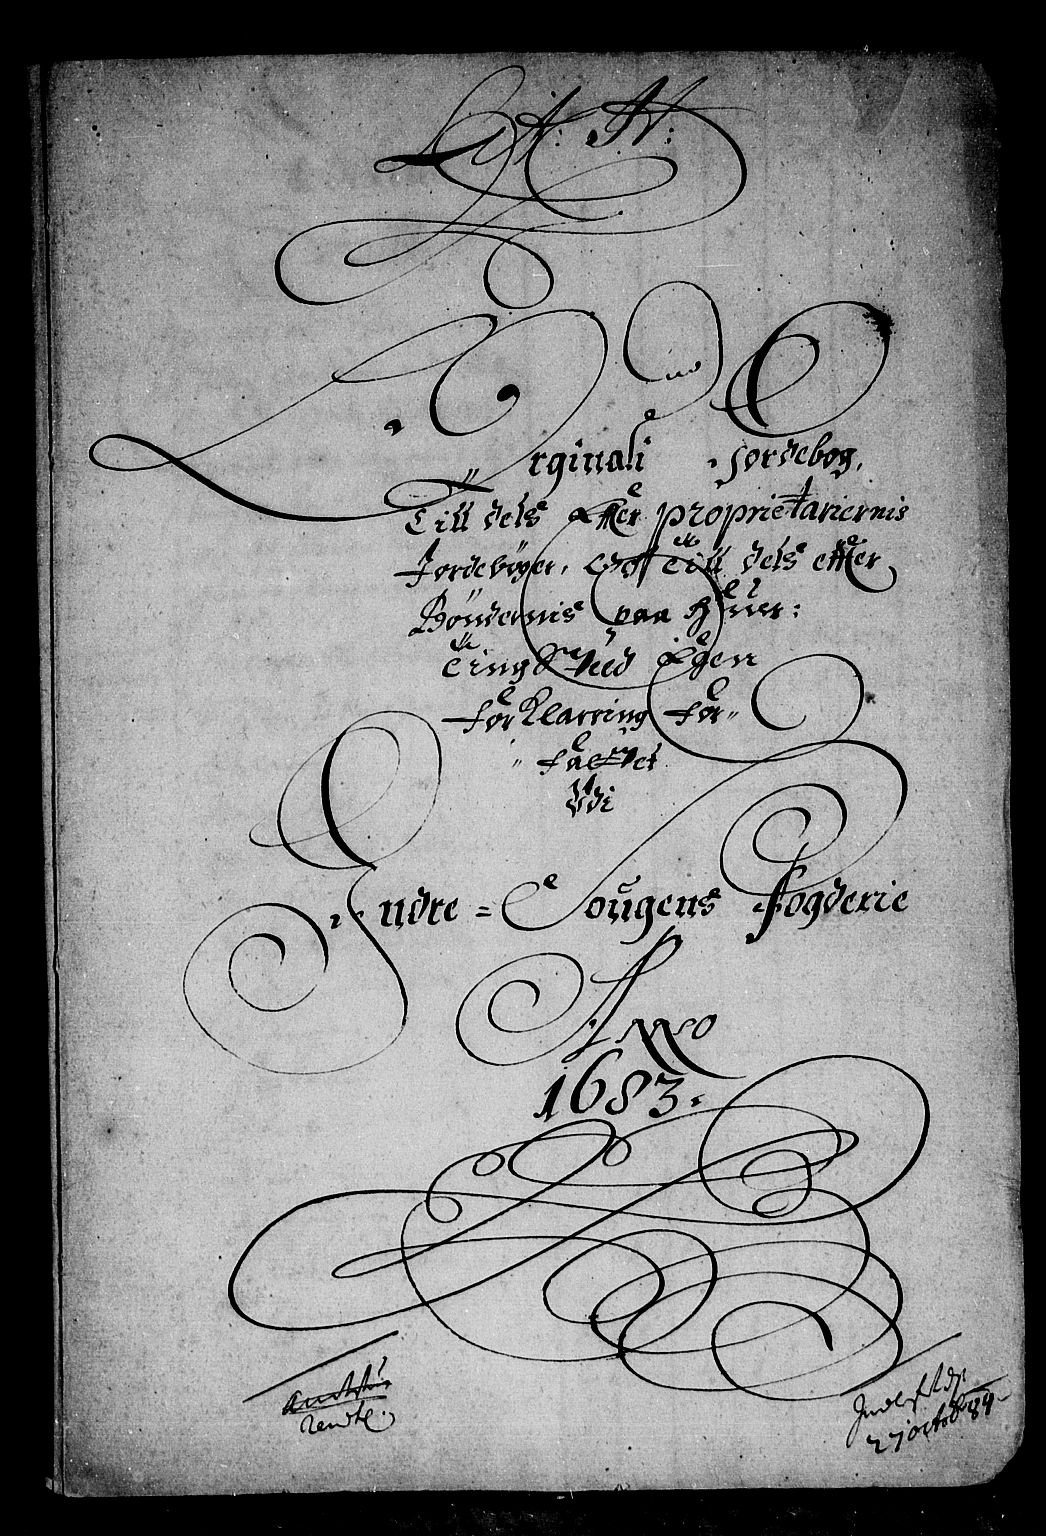 Lit: N:
Orginali Jordebog,
Till dels Effter proprietariernis
Jordebøger, Och till dels effter
Böndernis paa huer:
Ting Ved Egen
forklarring for-
fattet
Vdi
Indre = Sougens Fogderie
Anno
1683.
Rendte
27 octob 84